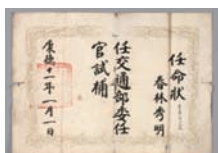 任命狀
春林秀明
任交通部委任
官試補
康德十一年一月一日